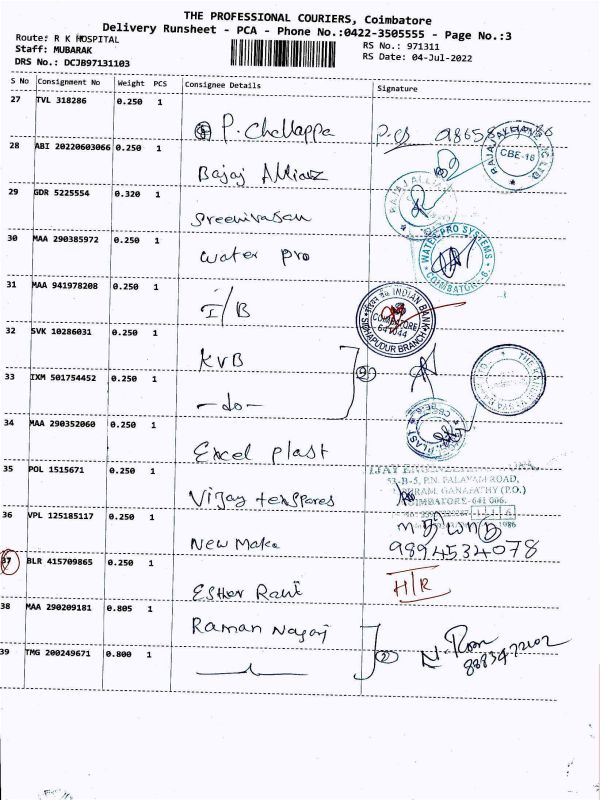 THE PROFESSIONAL COURIERS, Coimbatore
Delivery Runsheet - PCA - Phone No.:0422-3505555 - Page No.:3
Route: R K HOSPITAL
RS No.: 971311
Staff: MUBARAK
RS Date: 04-Jul-2022
DRS No.: DCJB97131103
S No Consignment No Weight PCS Consignee Details Signature
27 TVL 318286 0.250 1 P. Chellappa
28 ABI 20220603066 0.250 1 Bajaj Allianz
CBE-18
29 GDR 5225554 0.320 1 Sreenivasan
30 MAA 290385972 0.250 1 Water pro
WATER PRO SYSTEMS
31 MAA 941978208 0.250 1 I/B
INDIAN BANK
COIMBATORE
641044
SIDHAPUDUR BRANCH
32 SVK 10286031 0.250 1 KVB
33 IXM 501754452 0.250 1 -do-
34 MAA 290352060 0.250 1 Excel plast
35 POL 1515671 0.250 1 Vijay texspares
53-B-5, P.N. PALAYAM ROAD,
GANAPATHY (P.O.)
COIMBATORE-641 006.
36 VPL 125185117 0.250 1 New Make
9894534078
37 BLR 415709865 0.250 1 Esther Rani H/R
38 MAA 290209181 0.805 1 Raman Nagaj
39 TMG 200249671 0.800 1
8883472102